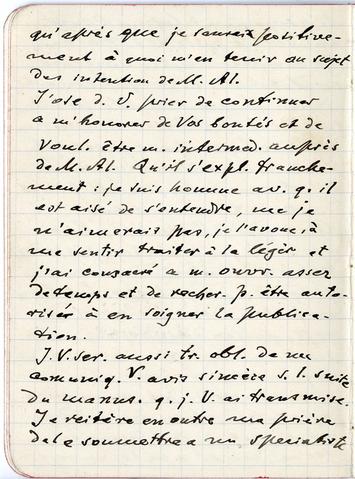 qu'après que je saurai positive-
ment à quoi m'en tenir au sujet
des intention de M. Al.
J'ose d. V. prier de continuer
a m'honorer de Vos bontés et de
Voul. être m. intermed. auprès
de M. Al. Qu'il s'expl. franche-
ment : je suis homme av. q. il
est aisé de s'entendre, me je
n'aimerais pas, je l'avoue, à
me sentir traiter à la légèr et
j'ai consacré a m. ouvr. assez
de temps et de recher. p. être auto-
riser à en soigner la publica-
tion.
J. V. ser. aussi tr. obl. de me
comuniq. V. avis sincèr s. l. suite
du manus. q. j. V. ai transmise.
Je reitère en outre ma prière
de le soummettre a un specialiste